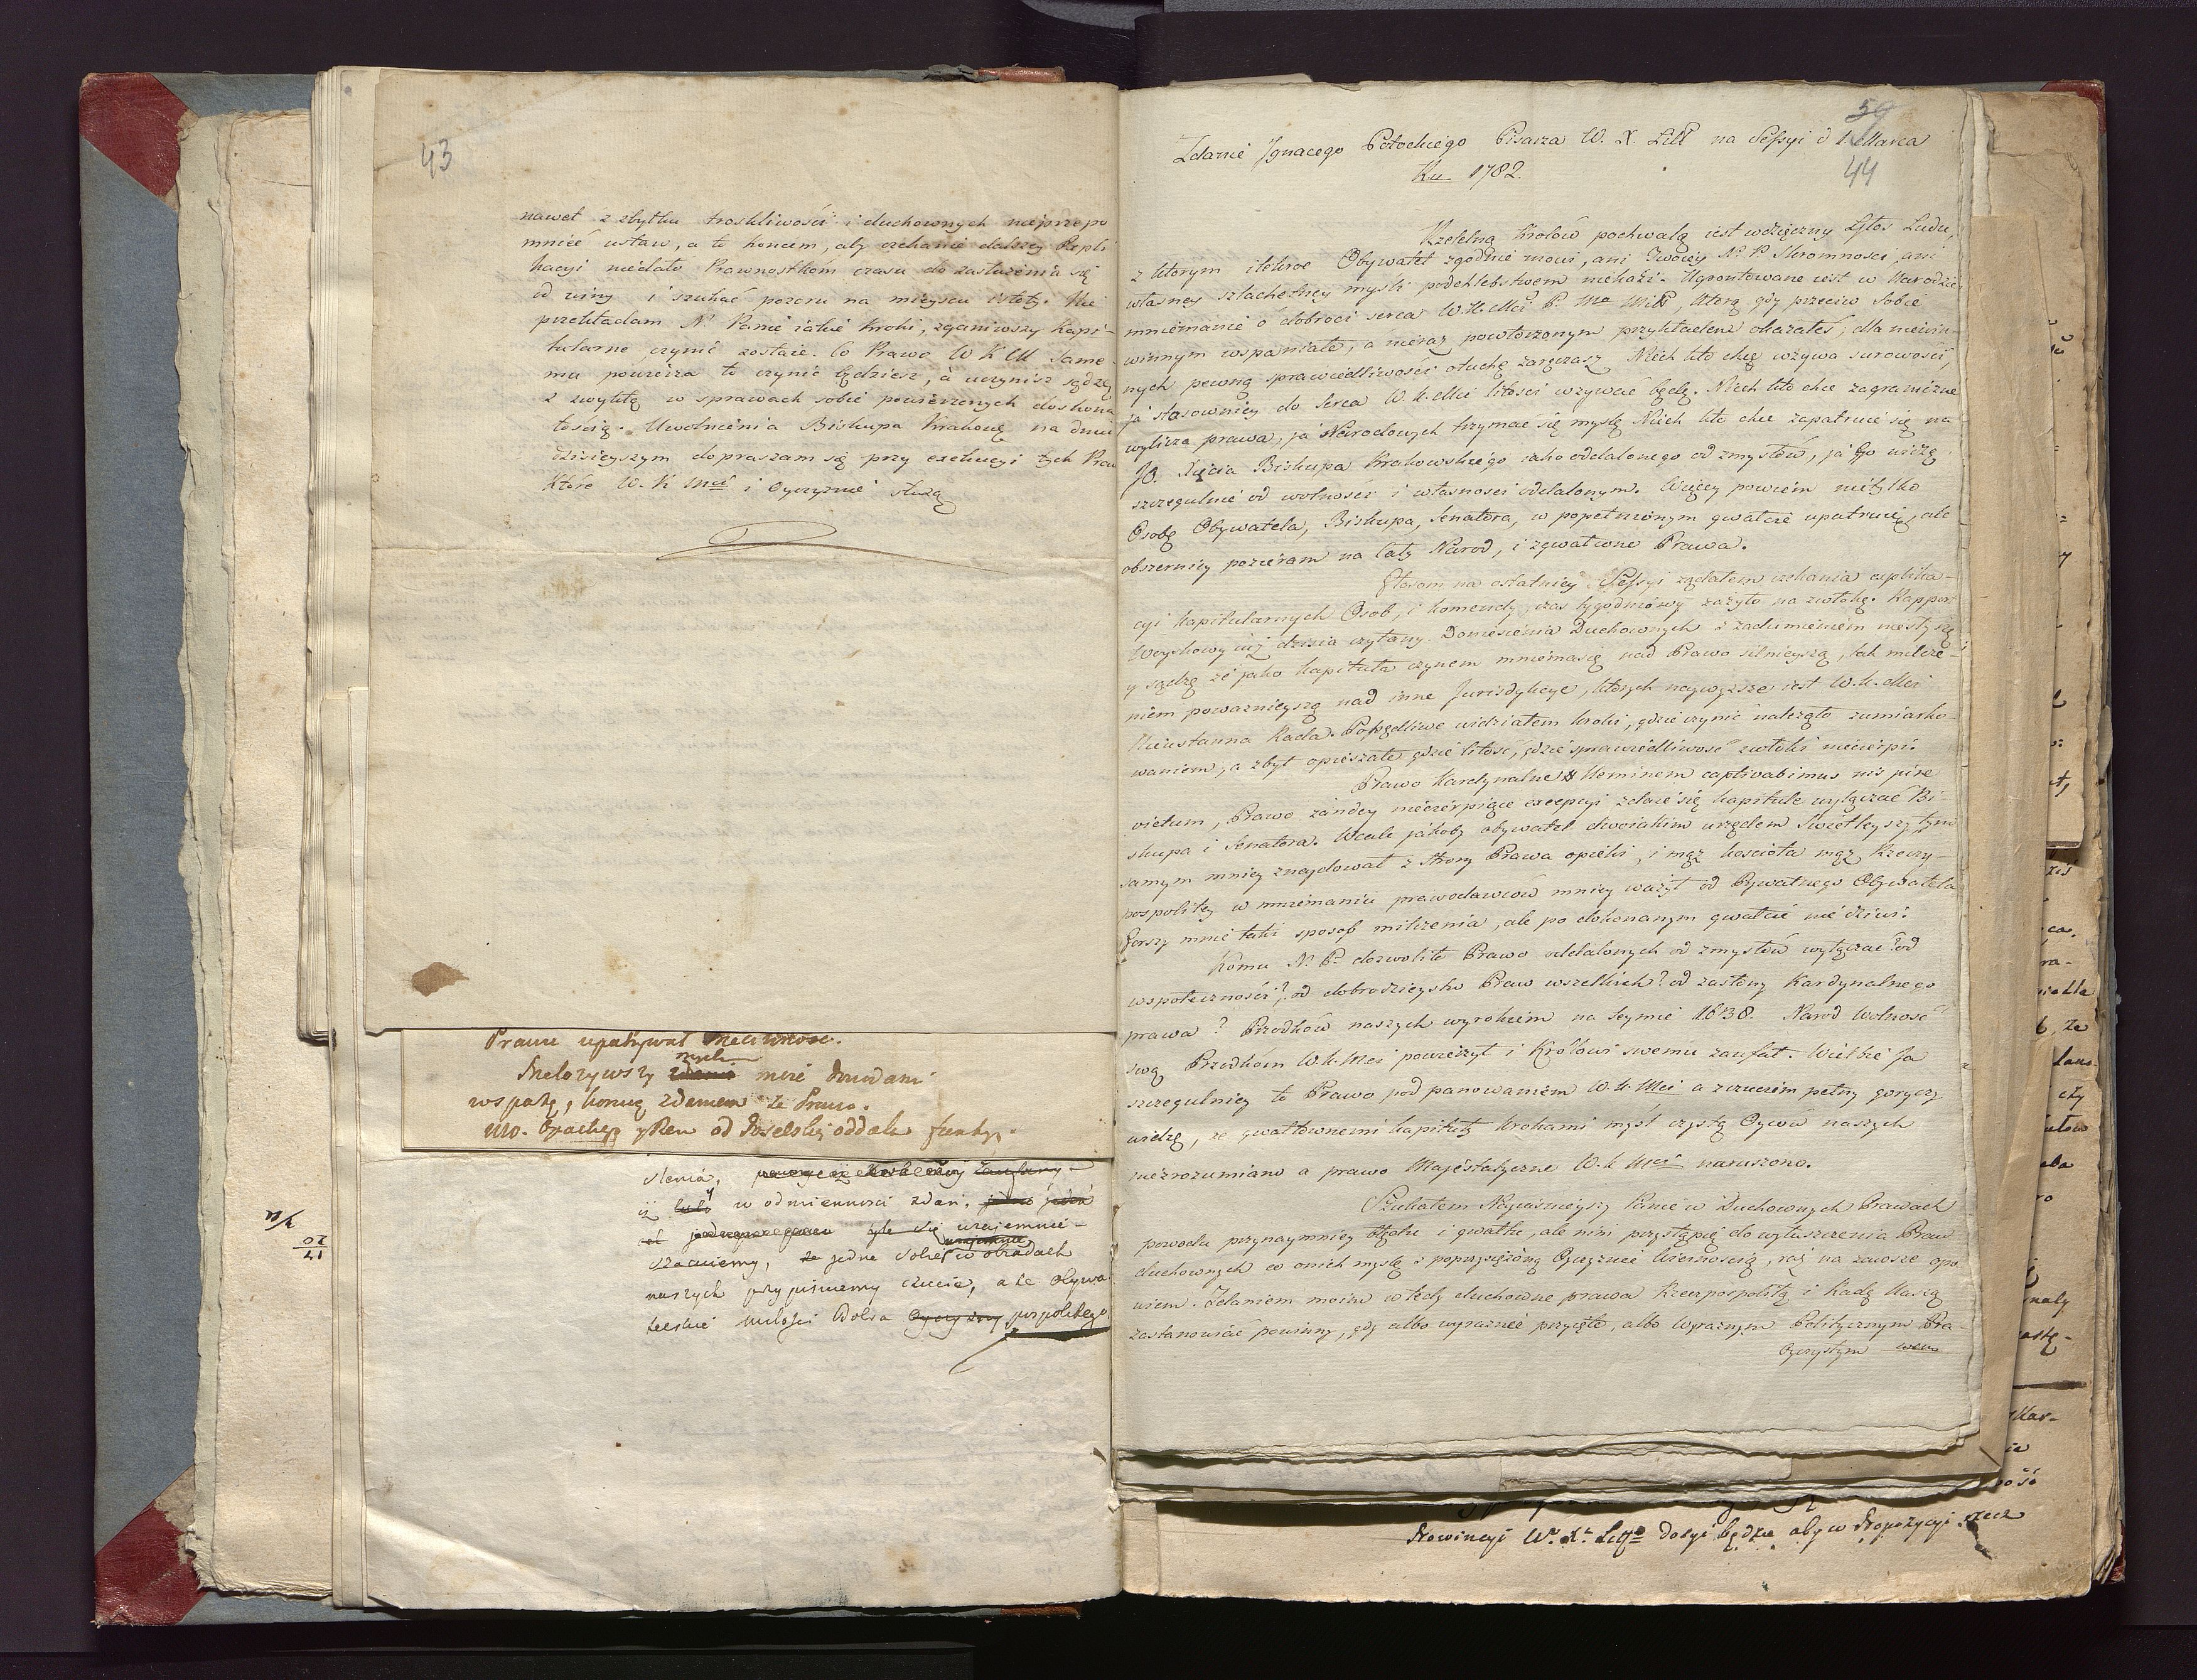 43
nawet z zbytku troskliwości i duchownych nieprzepo
mnieć ustaw, a to końcem, aby czekanie dalszey Repli
kacyi niedało Prawnostkom czasu do zasłużenia się
od winy i szukać pozoru na mieyscu istoty. Nie
przekładam N. Panie iakie kroki, zganiwszy kapi-
tularne czynić zostaie. Co Prawo W K M same-
mu powierza to czynić będziesz, à uczynisz sądzę
z zwykłą w sprawach sobie powierzonych doskona
łością. Uwolnienia Biskupa Krakows na dniu
dzisieyszym dopraszam się przy exekucyi tych Praw
Które W. K Mci i Oyczyznie służą
Prawu upatrywał
Niełożywszy
nych
nieć dowodami
wspartą, kończę zdaniem że Prawo.
od Poselskiey oddala funkcyi.
stenia,
iż w odmienności zdań,
wzaiemnie
szacuiemy, jedne sobie w obradach
naszych przypisuiemy czucie, a że obywa
telskie miłości dobra Oyczyzny pospolitego.
59
44
Zdanie Ignacego Potockiego Pisarza W. X. Litt na Sessyi d 1. Marca
Ru 1782.
Rzetelną Krolów pochwałą iest wdzięczny Głos Ludu,
z ktorym ilekroc Obywatel zgodnie mowi, ani Twoiey N. P. Skromnosci ani
własney szlachetney myśli podchlebstwem niekazi. Ugrontowane iest w Narodzie
mniemanie o dobroci serca W. K. Mci P. Mo Miło, ktorą gdy przeciw Sobie
winnym wspaniale, a nieraz powtorzonym przykładem okazałeś, dla niewin-
nych pewną sprawiedliwości otuchę zaręczasz Niech kto chcę wżywa surowości,
ja stosowniey do serca W. K. Mci litości wzywać będę. Niech kto chce zagraniczne
wylicza prawa, ja Narodowych trzymac się myslę Niech kto chce zapatruie się na
JO. Xięcia Biskupa Krakowskiego iako oddalonego od zmysłów, ja Go widzę
szczegulnie od wolności i własności oddalonym. Więcey powiem nietylko
Osobę Obywatela, Biskupa, Senatora, w popełnionym gwałcie upatruię, ale
obszerniey pozieram na cały Narod, i zgwałcone Prawa.
Głosom na ostatniey Sessyi żądałem czekania explika-
cyi kapitularnych Osob, i komendy, czas tygodniowy zażyto na zwłokę. Rapport
Woyskowy iuż dzisia czytany. Doniesienia Duchownych z zadumieniem niesłyszę
y sądzę że jako kapituła czynem mniemasię nad Prawo silnieyszą, tak milcze-
niem powaznieyszą nad inne Jurisdykcye, ktorych naywyższe iest W. K. Mci
Nieustanna Rada. Popędliwe widziałem kroki, gdzie czynić należało zumiarko
waniem, a zbyt opieszałe gdzie litość, gdzie sprawiedliwość zwłoki niecierpi.
Prawo Kardynalne Neminem captivabimus nis jure
victum, Prawo żandey niecierpiące excepcyi zdaie się kapitule wyłączać Bi-
skupa i Senatora. Wcale jakoby obywatel dwoiakim urzędem Swietleyszy tym
samym mniey znaydował z strony Prawa opieki, i mąż koscioła mąż Rzeczy-
pospolitey w mniemaniu prawodawców mniey ważył od Prywatnego Obywatela
Gorszy mnie taki sposob milczenia, ale po dokonanym gwałcie nie dziwi.
Komu N. P. dozwoliło Prawo oddalonych od zmysłów wyłączać? od
wspołeczności? od dobrodzieystw Praw wszelkich? od zasłony Kardynalnego
prawa? Przodków naszych wyrokiem na Seymie 1638. Narod wolność
swą Przodkom W. K. Mci powierzył i Krolowi swemu zaufał. Wielbię Ja
szczegulniey to Prawo pod panowaniem W. K. Mci a zczuciem pełny goryczy
widzę, że gwałtownemi kapituły krokami myśl czystą Oyców naszych
niezrozumiano a prawo Majestatyczne W. K Mci naruszono.
Szukałem Nayiasnieyszy Panie w Duchownych Prawach
powodu przynaymniey błędu i gwałtu, ale nim przystąpię do wyłuszczenia Praw
duchownych co onich myslę z poprzysiężoną Oyczyznie Wiernością, raz na zawsze opo
wiem. Zdaniem moim wtedy duchowne prawa Rzeczpospolitą i Radę Naszą
zastanowiać powinny, gdy albo wyraznie przyięte, albo wyraznym Politycznym Pra-
Oyczystym wem
Prowincyi W. X. Litto dosyć będzie aby w Propozycyi rzecz